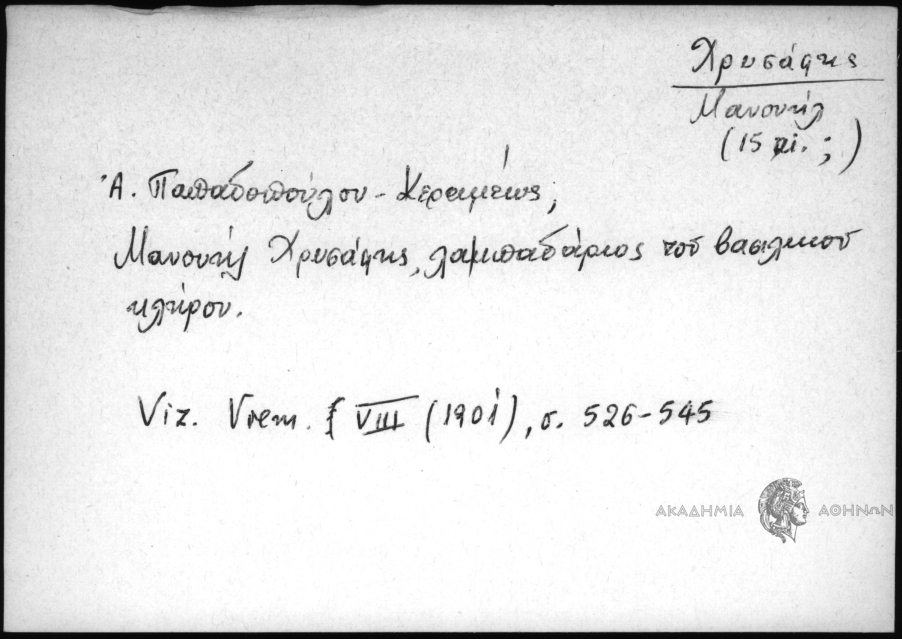 Χρυσάφης
Μανουήλ
(15 αἰ. ;)
Ἀ. Παπαδοπούλου - Κεραμέως,
Μανουήλ Χρυσάφης, λαμπαδάριος τοῦ βασιλικοῦ
κλήρου.
Viz. Vrem. VIII (1901), σ. 526-545
ΑΚΑΔΗΜΙΑ ΑΘΗΝΩΝ